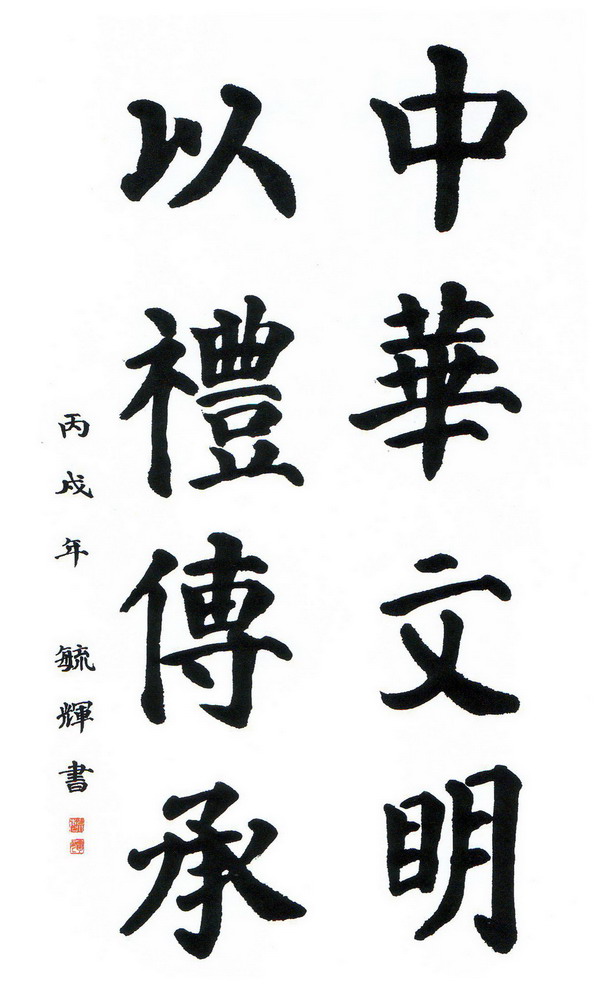 中華文明
以禮傳承
丙戌年 毓輝書